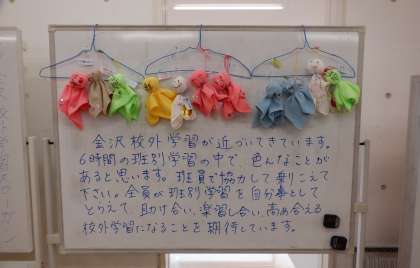 金沢校外学習が近づいてきています。
6時間の班別学習の中で、色んなことが
あると思います。班員で協力して乗りこえて
下さい。全員が班別学習を自分事として
とらえて、助け合い、楽習し合い、高め合える
校外学習になることを期待しています。